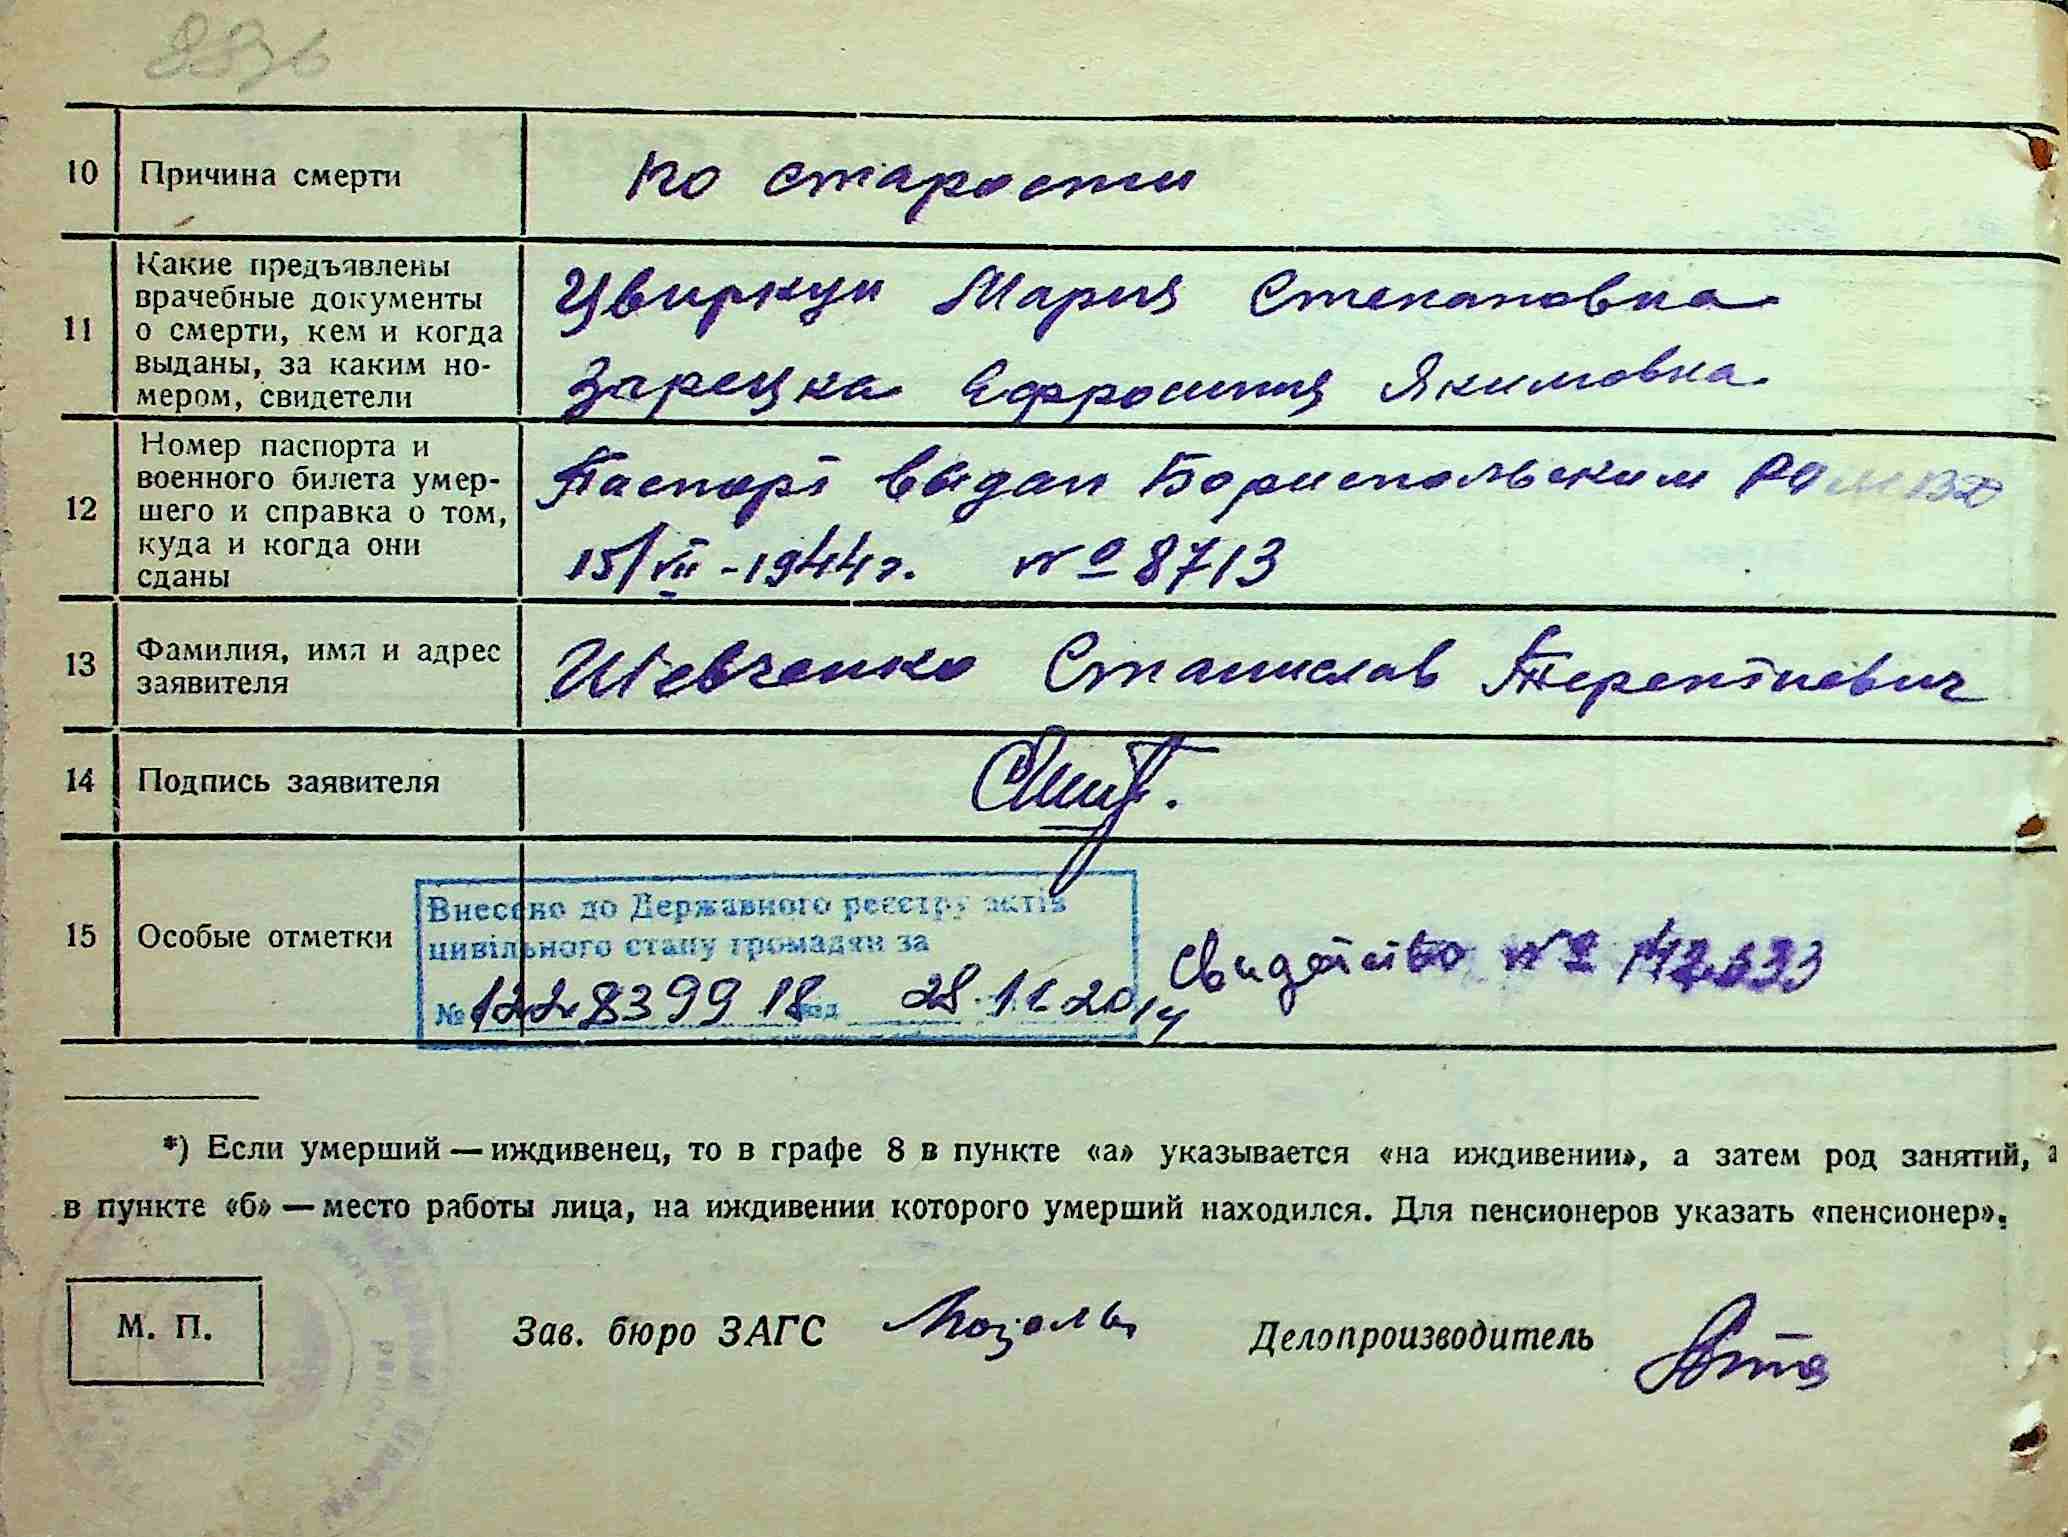 10 Причина смерти по старости
11 Какие предъявлены
врачебные документы
о смерти, кем и когда
выданы, за каким но-
мером, свидетели
Цвиркун Мария Степановна
Зарецка Ефросиния Якимовна
12 Номер паспорта и
военного билета умер-
шего и справка о том,
куда и когда они
сданы
Паспорт выдан Бориспольским
15/VII-1944г. № 8713
13 Фамилия, имя и адрес
заявителя
Шевченко Станислав Терентиевич
14 Подпись заявителя
15 Особые отметки
Внесено до Державного реєстру актів
цивільного стану громадян за
№ 122839918 від 28.11.2014
Свидетство №
*) Если умерший — иждивенец, то в графе 8 в пункте «а» указывается «на иждивении», а затем род занятий, а
в пункте «б» — место работы лица, на иждивении которого умерший находился. Для пенсионеров указать «пенсионер».
М. П.
Зав. бюро ЗАГС
Делопроизводитель